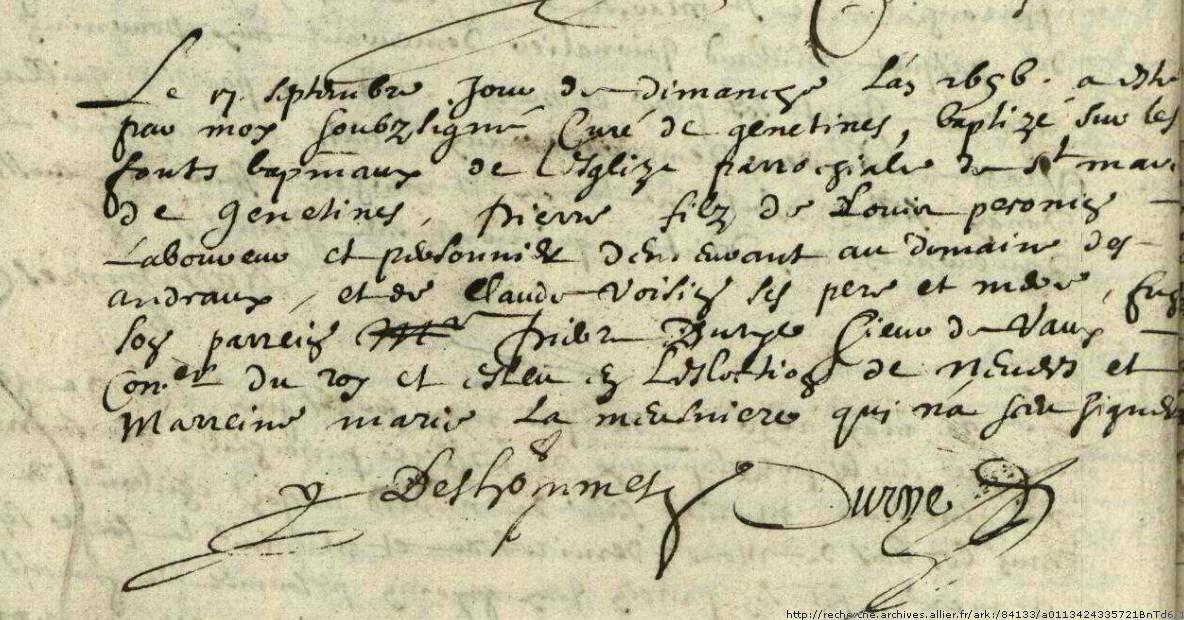 Le 17 septembre Jour de dimanche Lan 1656. a este
par moy soubzsigné Curé de genetines, baptizé sur les
fonts bapmaux de Lesglize parrochiale de St mar
de Genetines, Pierre filz de Louis peronin
Laboureur et personnier demeurant au domaine des
andraux, et de Claude Voisin ses pere et mere,
son parrein Pierre Duryе Sieur de Vaux
Con.er du roy et esleu en Leslection de Nevers et
Marreine marie La meusniere qui na sceu signer
Deshommes Durye
http://recherche.archives.allier.fr/ark:/84133/a0113424335721BnTd6